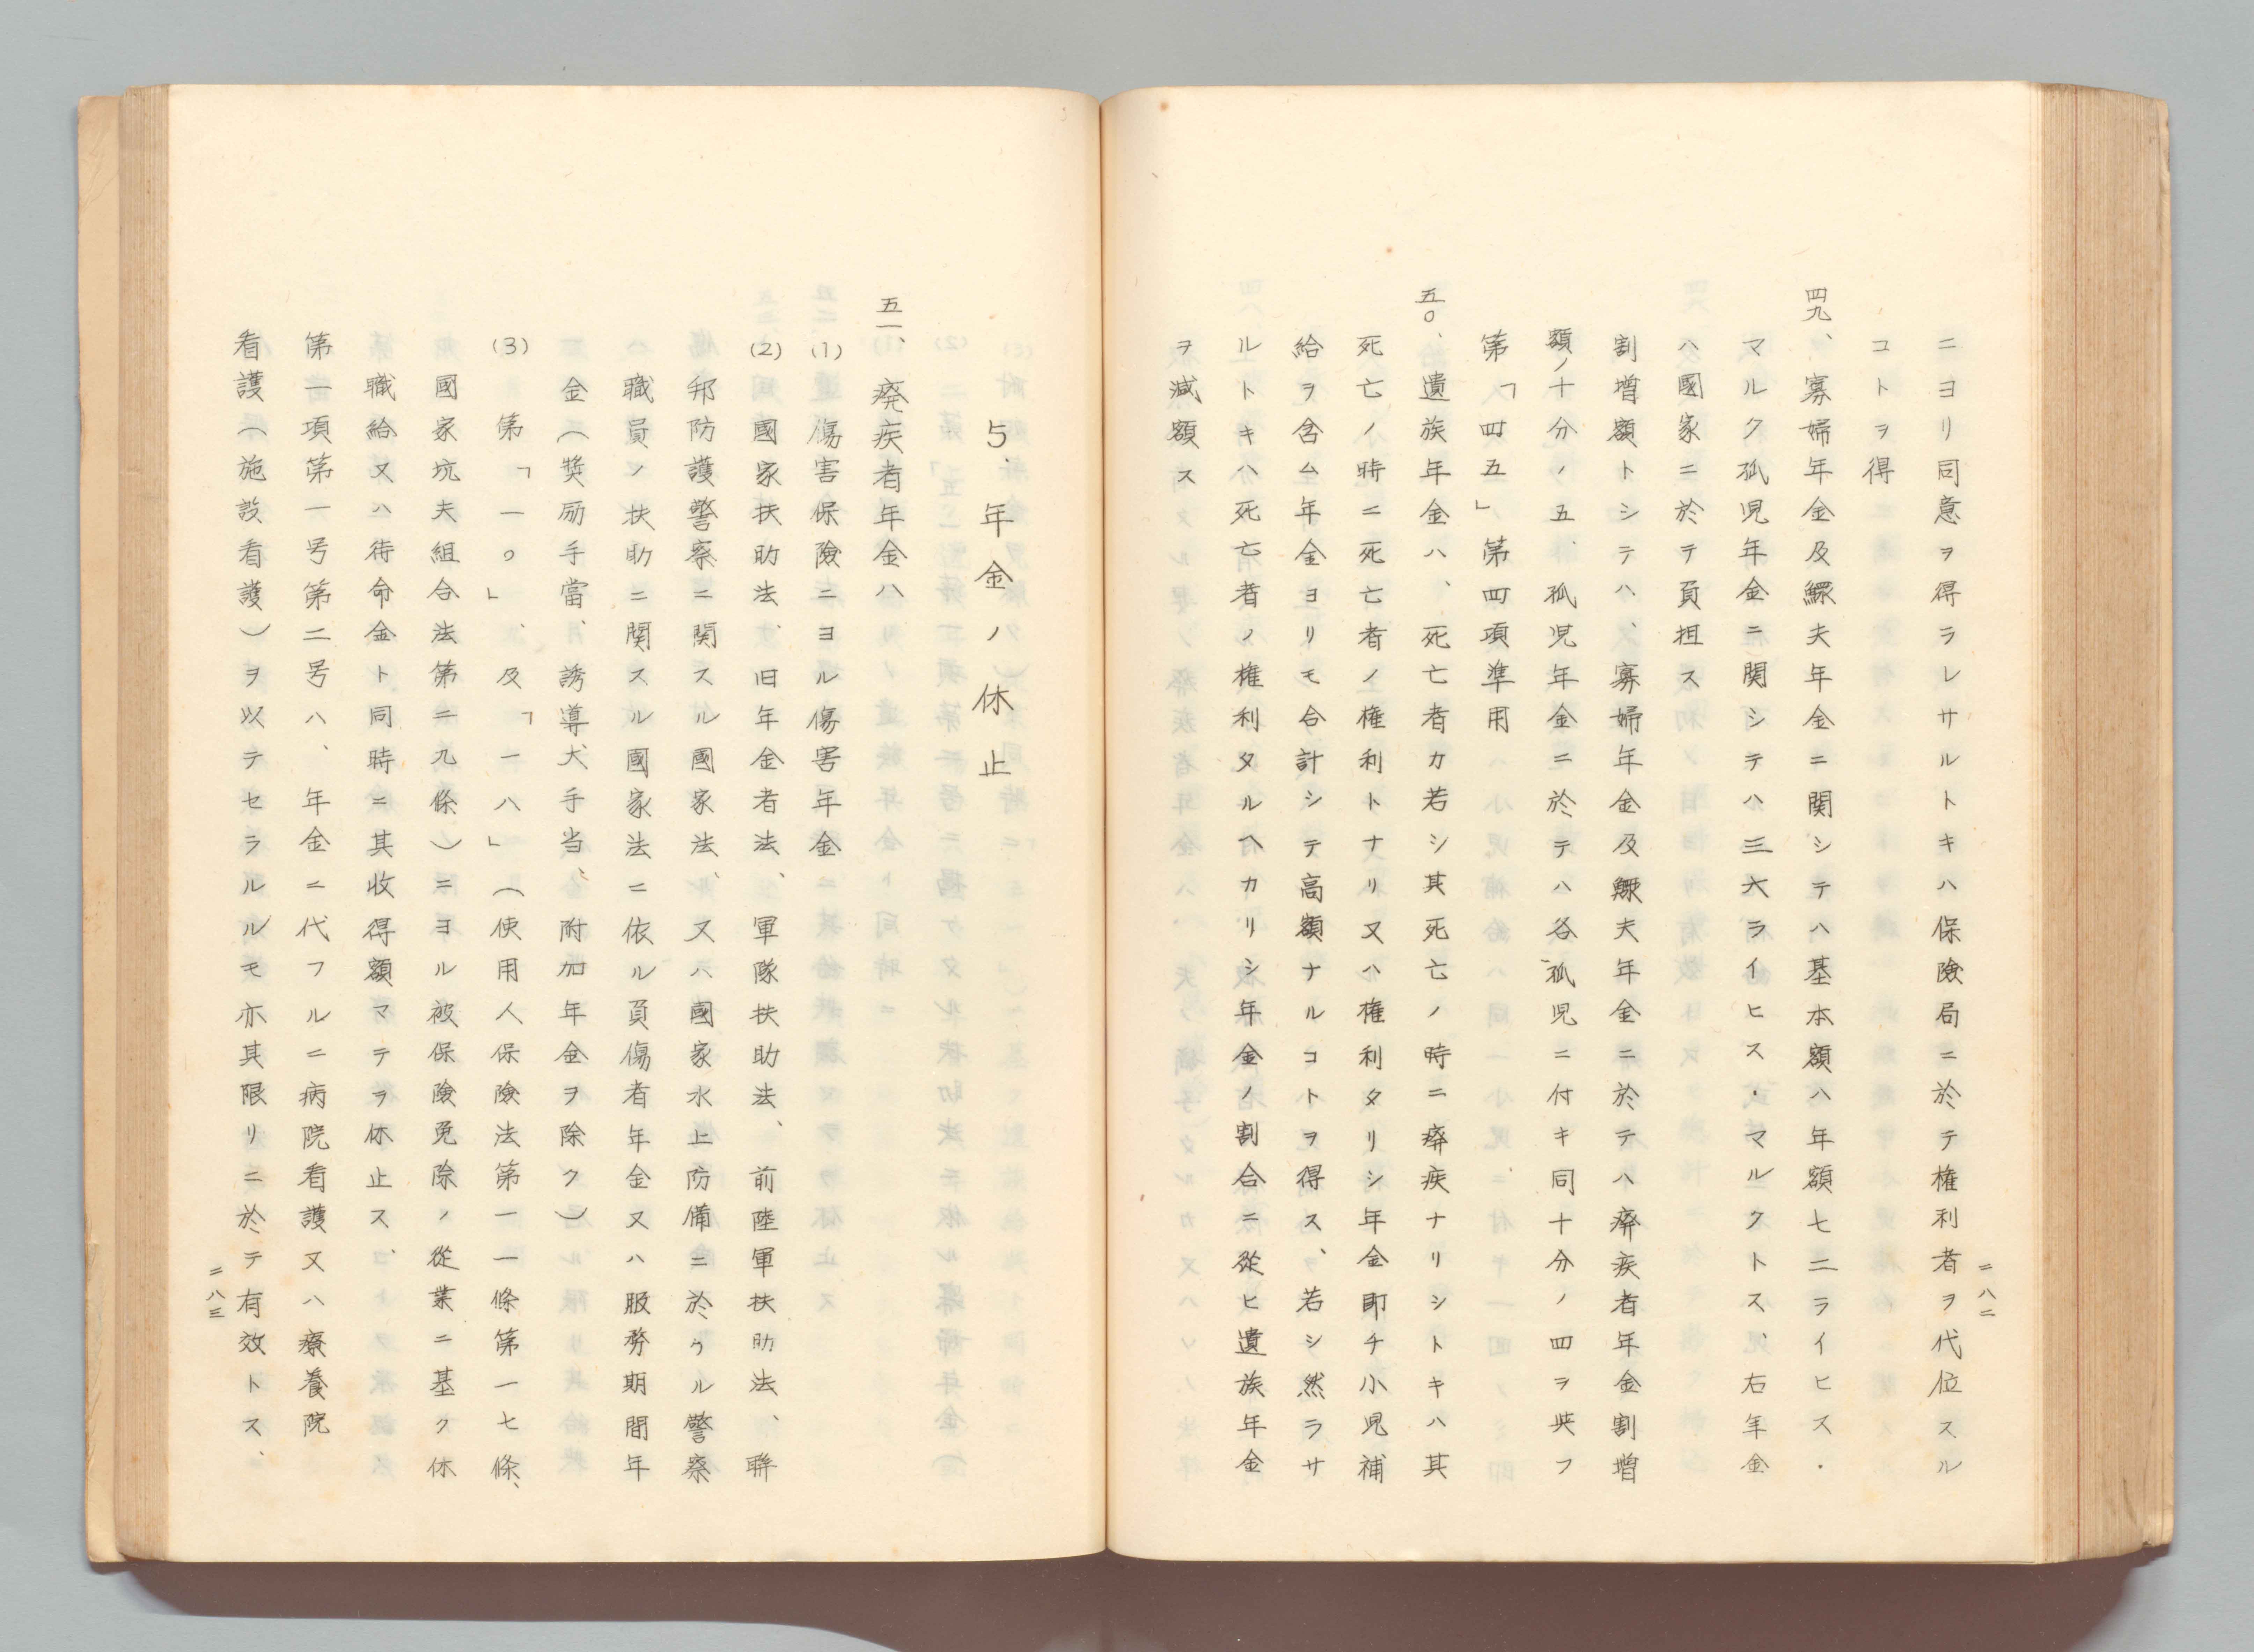 ニヨリ同意ヲ得ラレサルトキハ保險局ニ於テ権利者ヲ代位スル
コトヲ得
四九、寡婦年金及鰥夫年金ニ関シテハ基本額ハ年額七二ライヒス・
マルク孤児年金ニ関シテハ三六ライヒス・マルクトス、右年金
ハ國家ニ於テ負担ス
割増額トシテハ、寡婦年金及鰥夫年金ニ於テハ癈疾者年金割増
額ノ十分ノ五、孤児年金ニ於テハ各孤児ニ付キ同十分ノ四ヲ与フ
第「四五」第四項準用
五〇、遺族年金ハ、死亡者カ若シ其死亡ノ時ニ癈疾ナリシトキハ其
死亡ノ時ニ死亡者ノ権利トナリ又ハ権利タリシ年金即チ小児補
給ヲ含ム年金ヨリモ合計シテ高額ナルコトヲ得ス、若シ然ラサ
ルトキハ死亡者ノ権利タルヘカリシ年金ノ割合ニ從ヒ遺族年金
ヲ減額ス
二八二
5、年金ノ休止
五一、廃疾者年金ハ
(1)傷害保險ニヨル傷害年金
(2)國家扶助法、旧年金者法、軍隊扶助法、前陸軍扶助法、聯
邦防護警察ニ関スル國家法、又ハ國家水上防備ニ於ケル警察
職員ノ扶助ニ関スル國家法ニ依ル負傷者年金又ハ服務期間年
金(奬励手當、誘導犬手当、附加年金ヲ除ク)
(3)第「一〇」、及「一八」(使用人保險法第一一條第一七條、
國家坑夫組合法第二九條)ニヨル被保險免除ノ從業ニ基ク休
職給又ハ待命金ト同時ニ其收得額マテヲ休止ス、
第一項第一号第二号ハ、年金ニ代フルニ病院看護又ハ療養院
看護(施設看護)ヲ以テセラルルモ亦其限リニ於テ有效トス、
二八三